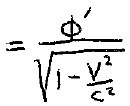 = ϕ′ / √(1 − V²/C²)